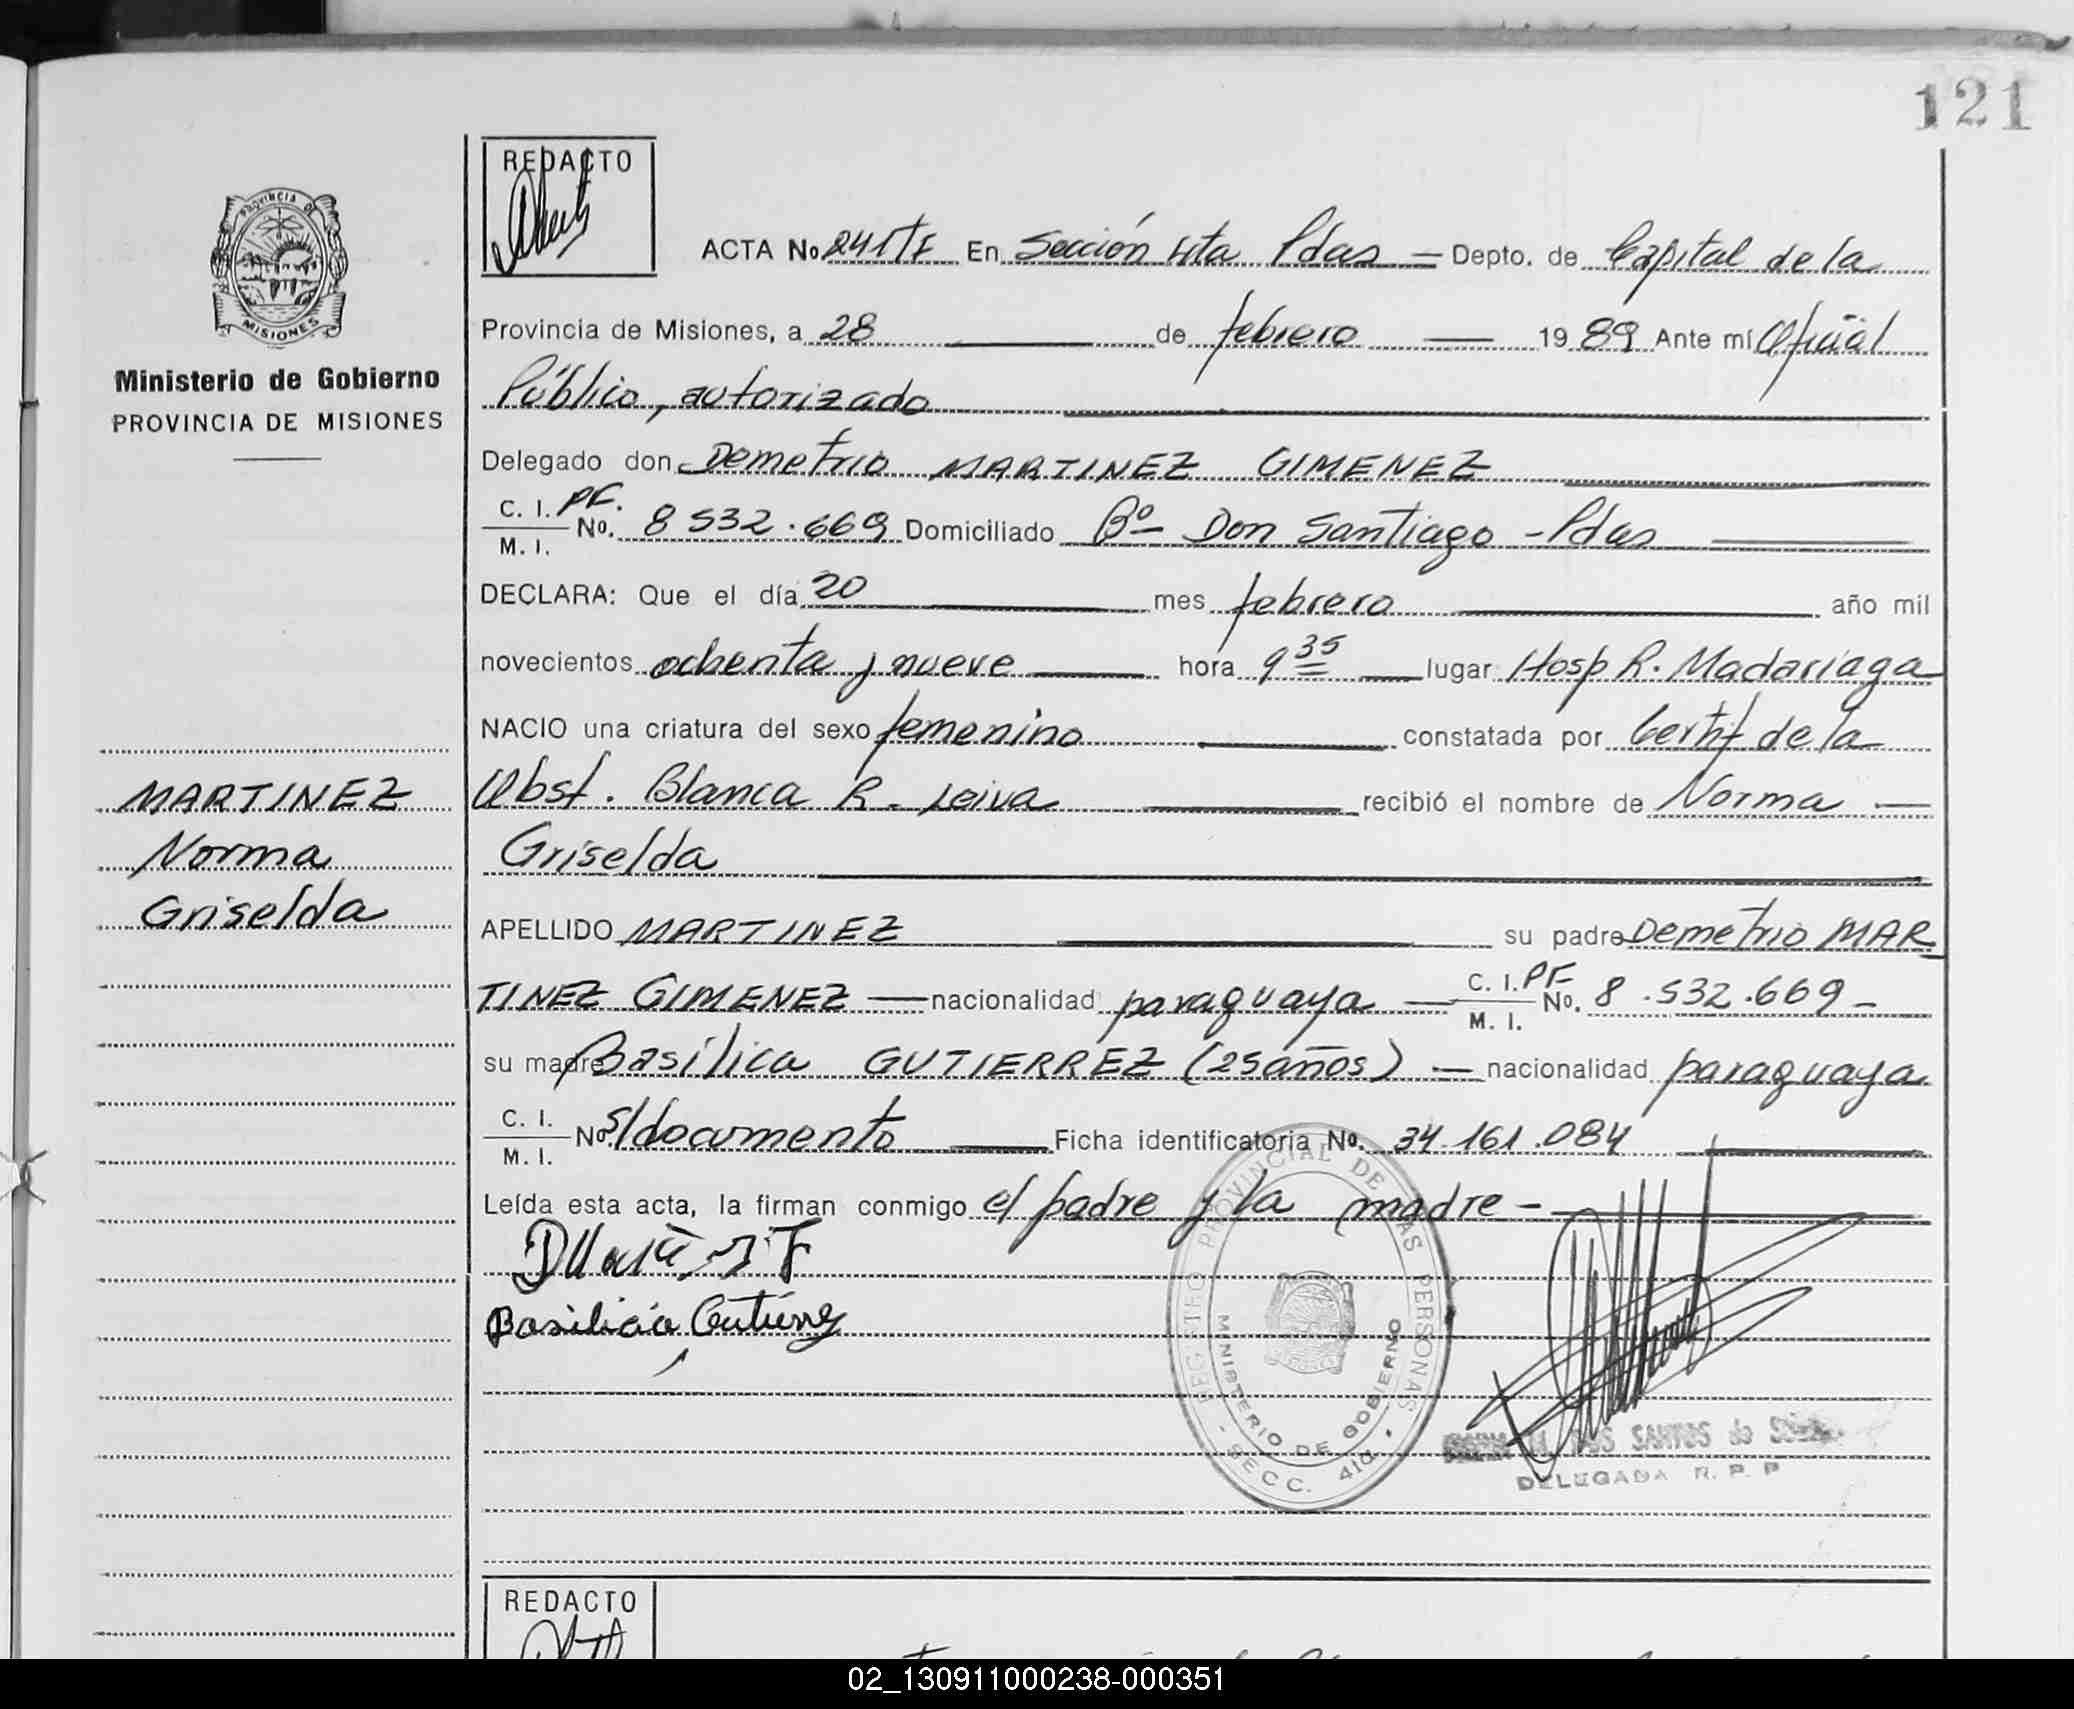 121
REDACTO
PROVINCIA DE
MISIONES
ACTA No 241 TI En Sección 4ta Pdas — Depto. de Capital de la
Provincia de Misiones, a 28 de febrero 19 89 Ante mí Oficial
Ministerio de Gobierno
PROVINCIA DE MISIONES
Público, autorizado
Delegado don Demetrio MARTINEZ GIMENEZ
C. I. PF.
M. I. No. 8 532.669 Domiciliado Bº Don Santiago - Pdas
DECLARA: Que el día 20 mes febrero año mil
novecientos ochenta y nueve hora 9 35 lugar Hosp R. Madariaga
NACIO una criatura del sexo femenino constatada por Certif de la
MARTINEZ
Obst. Blanca R. Leiva recibió el nombre de Norma
Norma
Griselda
Griselda
APELLIDO MARTINEZ su padre Demetrio MAR
TINEZ GIMENEZ — nacionalidad paraguaya — C. I. PF M. I. No. 8.532.669 -
su madre Basílica GUTIERREZ (25 años) — nacionalidad paraguaya
C. I. M. I. No. s/documento Ficha identificatoria No. 34.161.084
Leída esta acta, la firman conmigo el padre y la madre -
Basilicia Gutierrez
REGISTRO PROVINCIAL DE LAS PERSONAS
MINISTERIO DE GOBIERNO
- SECC. 4ta -
DOS SANTOS de
DELEGADA R. P. P
REDACTO
02_130911000238-000351